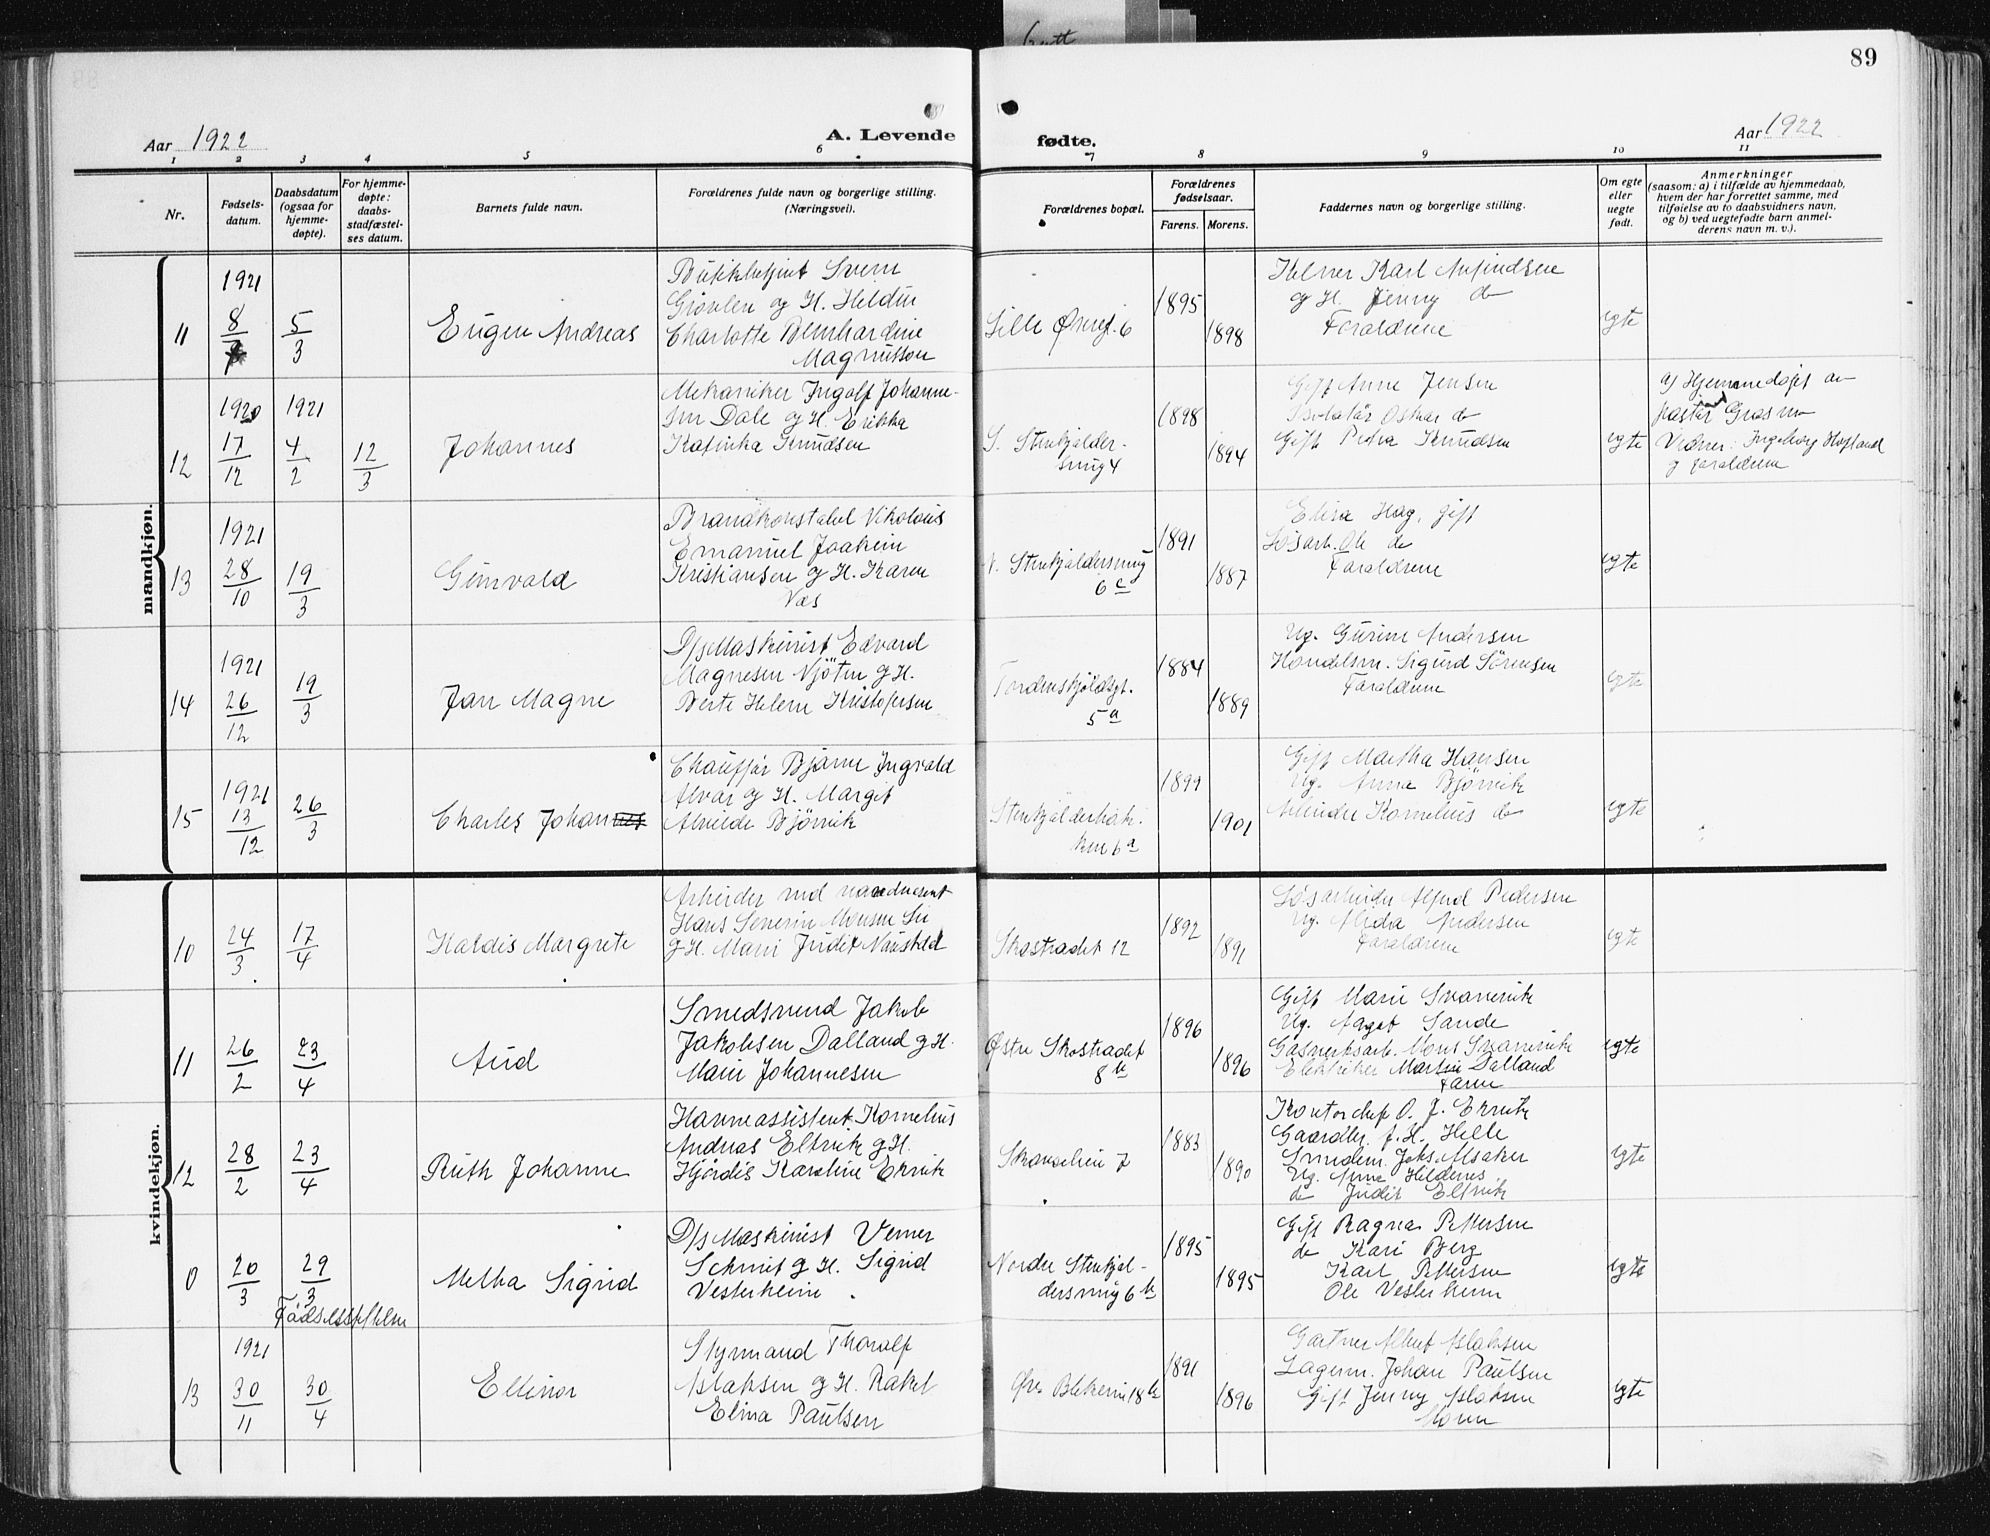 89
Aar 1922
A. Levende
fødte.
Aar 1922
1 2 3 4 5 6 7 8 9 10 11
Nr.
Fødsels-
datum.
Daabsdatum
(ogsaa for
hjemme-
døpte).
For hjemme-
døpte:
daabs-
stadfæstel-
ses datum.
Barnets fulde navn.
Forældrenes fulde navn og borgerlige stilling.
(Næringsvei).
Forældrenes bopæl.
Forældrenes
fødselsaar.
Farens. Morens.
Faddernes navn og borgerlige stilling.
Om egte
eller
uegte
født.
Anmerkninger
(saasom: a) i tilfælde av hjemmedaab,
hvem der har forrettet samme, med
tilføielse av to daabsvidners navn,
og b) ved uegtefødte barn anmel-
derens navn m. v.).
mandkjøn.
11
1921
8
5/3
Eugen Andreas
Svein
og H.
Charlotte Bernhardine
Magnusson
Lille Øvregt. 6
1895
1898
Karl
og H. Jenny de
Forældrene
egte
12
1920
17/12
1921
4/2
12/3
Johannes
Mekaniker Ingolf Johanne-
sen Dale og H. Erikka
Katinka Knudsen
S. Stenkjelder-
smug 4
1898
1894
Gift Anne Jensen
Oskar de
Gift Petra Knudsen
egte
a) Hjemmedøpt av
pastor
Vidner: Ingeborg
og forældrene
13
1921
28/10
19/3
Gunvald
Brandkonstabel Nikolaus
Emanuel Joakim
Kristiansen og H. Karen
Næs
N. Stenkjeldersmug
6 c
1891
1887
Elisa Hag, gift
Løsarb. Ole de
Forældrene
egte
14
1921
26/12
19/3
Jan Magne
D/s Maskinist Edvard
Magnesen Njøten og H.
Berte Helene Kristofersen
Tordenskjoldsgt.
5 a
1884
1889
Ug. Gurine Andersen
Handelsm. Sigurd Sørensen
Forældrene
egte
15
1921
13/12
26/3
Charles Johannes
Chauffør Bjarne Ingvald
Alvær og H. Margit
Alvilde Bjørvik
Stenkjelderbak-
ken 6 a
1899
1901
Gift Martha Hansen
Ug. Anna Bjørvik
Arbeider Kornelius de
egte
kvindekjøn.
10
24/3
17/4
Haldis Margrete
Arbeider ved
Hans Severin Monsen
og H. Marie Judit Naustdal
Skostrædet 12
1892
1891
Løsarbeider Alfred Pedersen
Ug. Alida Andersen
Forældrene
egte
11
26/2
23/4
Aud
Smedsvend Jakob
Jakobsen Dalland og H.
Marie Johannesen
Østre Skostrædet
8 b
1896
1896
Gift Marie Svanevik
Ug. Aagot Sande
Gasverksarb. Mons Svanevik
Elektriker Martin Dalland
Faren
egte
12
28/2
23/4
Ruth Johanne
Havneassistent Kornelius
Andreas Eltvik og H.
Hjørdis Karoline Ekvik
Skanselien 7
1883
1890
Kontorchef O. J. Ekvik
Gaardbr. J. H. Helle
Ug. Anne Hildenes
de Judit Eltvik
egte
0
20/3
29/3
Fødselsstiftelsen
Melba Sigrid
D/s Maskinist Verner
Schmit og H. Sigrid
Vesterheim
Nordre Stenkjel-
dersmug 6 b
1895
1895
Gift Ragna Pettersen
de Kari Berg
Karl Pettersen
Ole Vesterheim
egte
13
1921
30/11
30/4
Ellinor
Styrmand Thoralf
Aslaksen og H. Rakel
Elina Paulsen
Øvre Blekevei 18 b
1891
1896
Gartner Albert Aslaksen
Lagerm. Johan Paulsen
Gift Jenny Aslaksen
Moren
egte